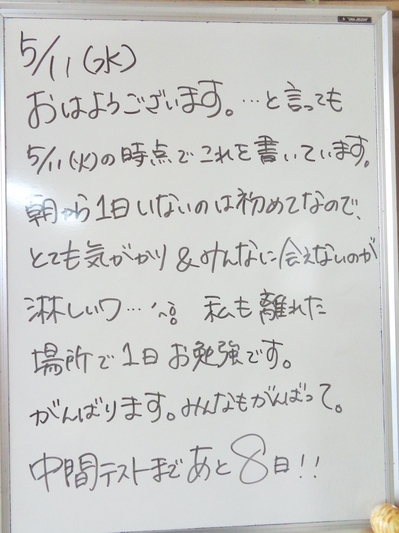 5/11(水)
おはようございます。…と言っても
5/11(火)の時点でこれを書いています。
朝から1日いないのは初めてなので、
とても気がかり&みんなに会えないのが
淋しいワ… 私も離れた
場所で1日お勉強です。
がんばります。みんなもがんばって。
中間テストまであと8日!!